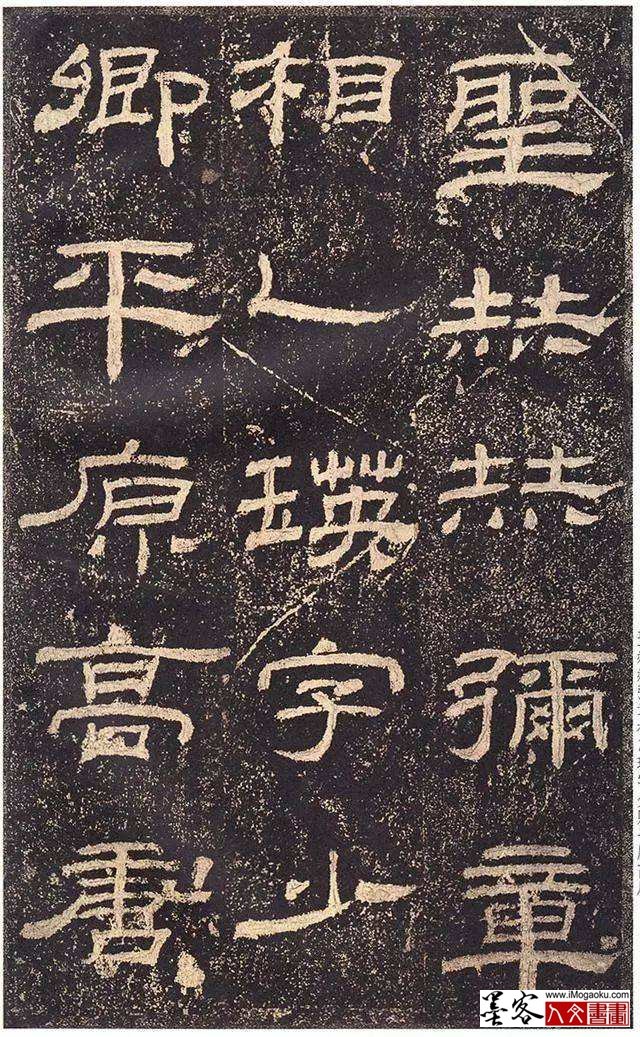 聖赫赫彌章
相乙瑛字少
卿平原高唐
墨客
www.iMogaoku.com
人文書畫